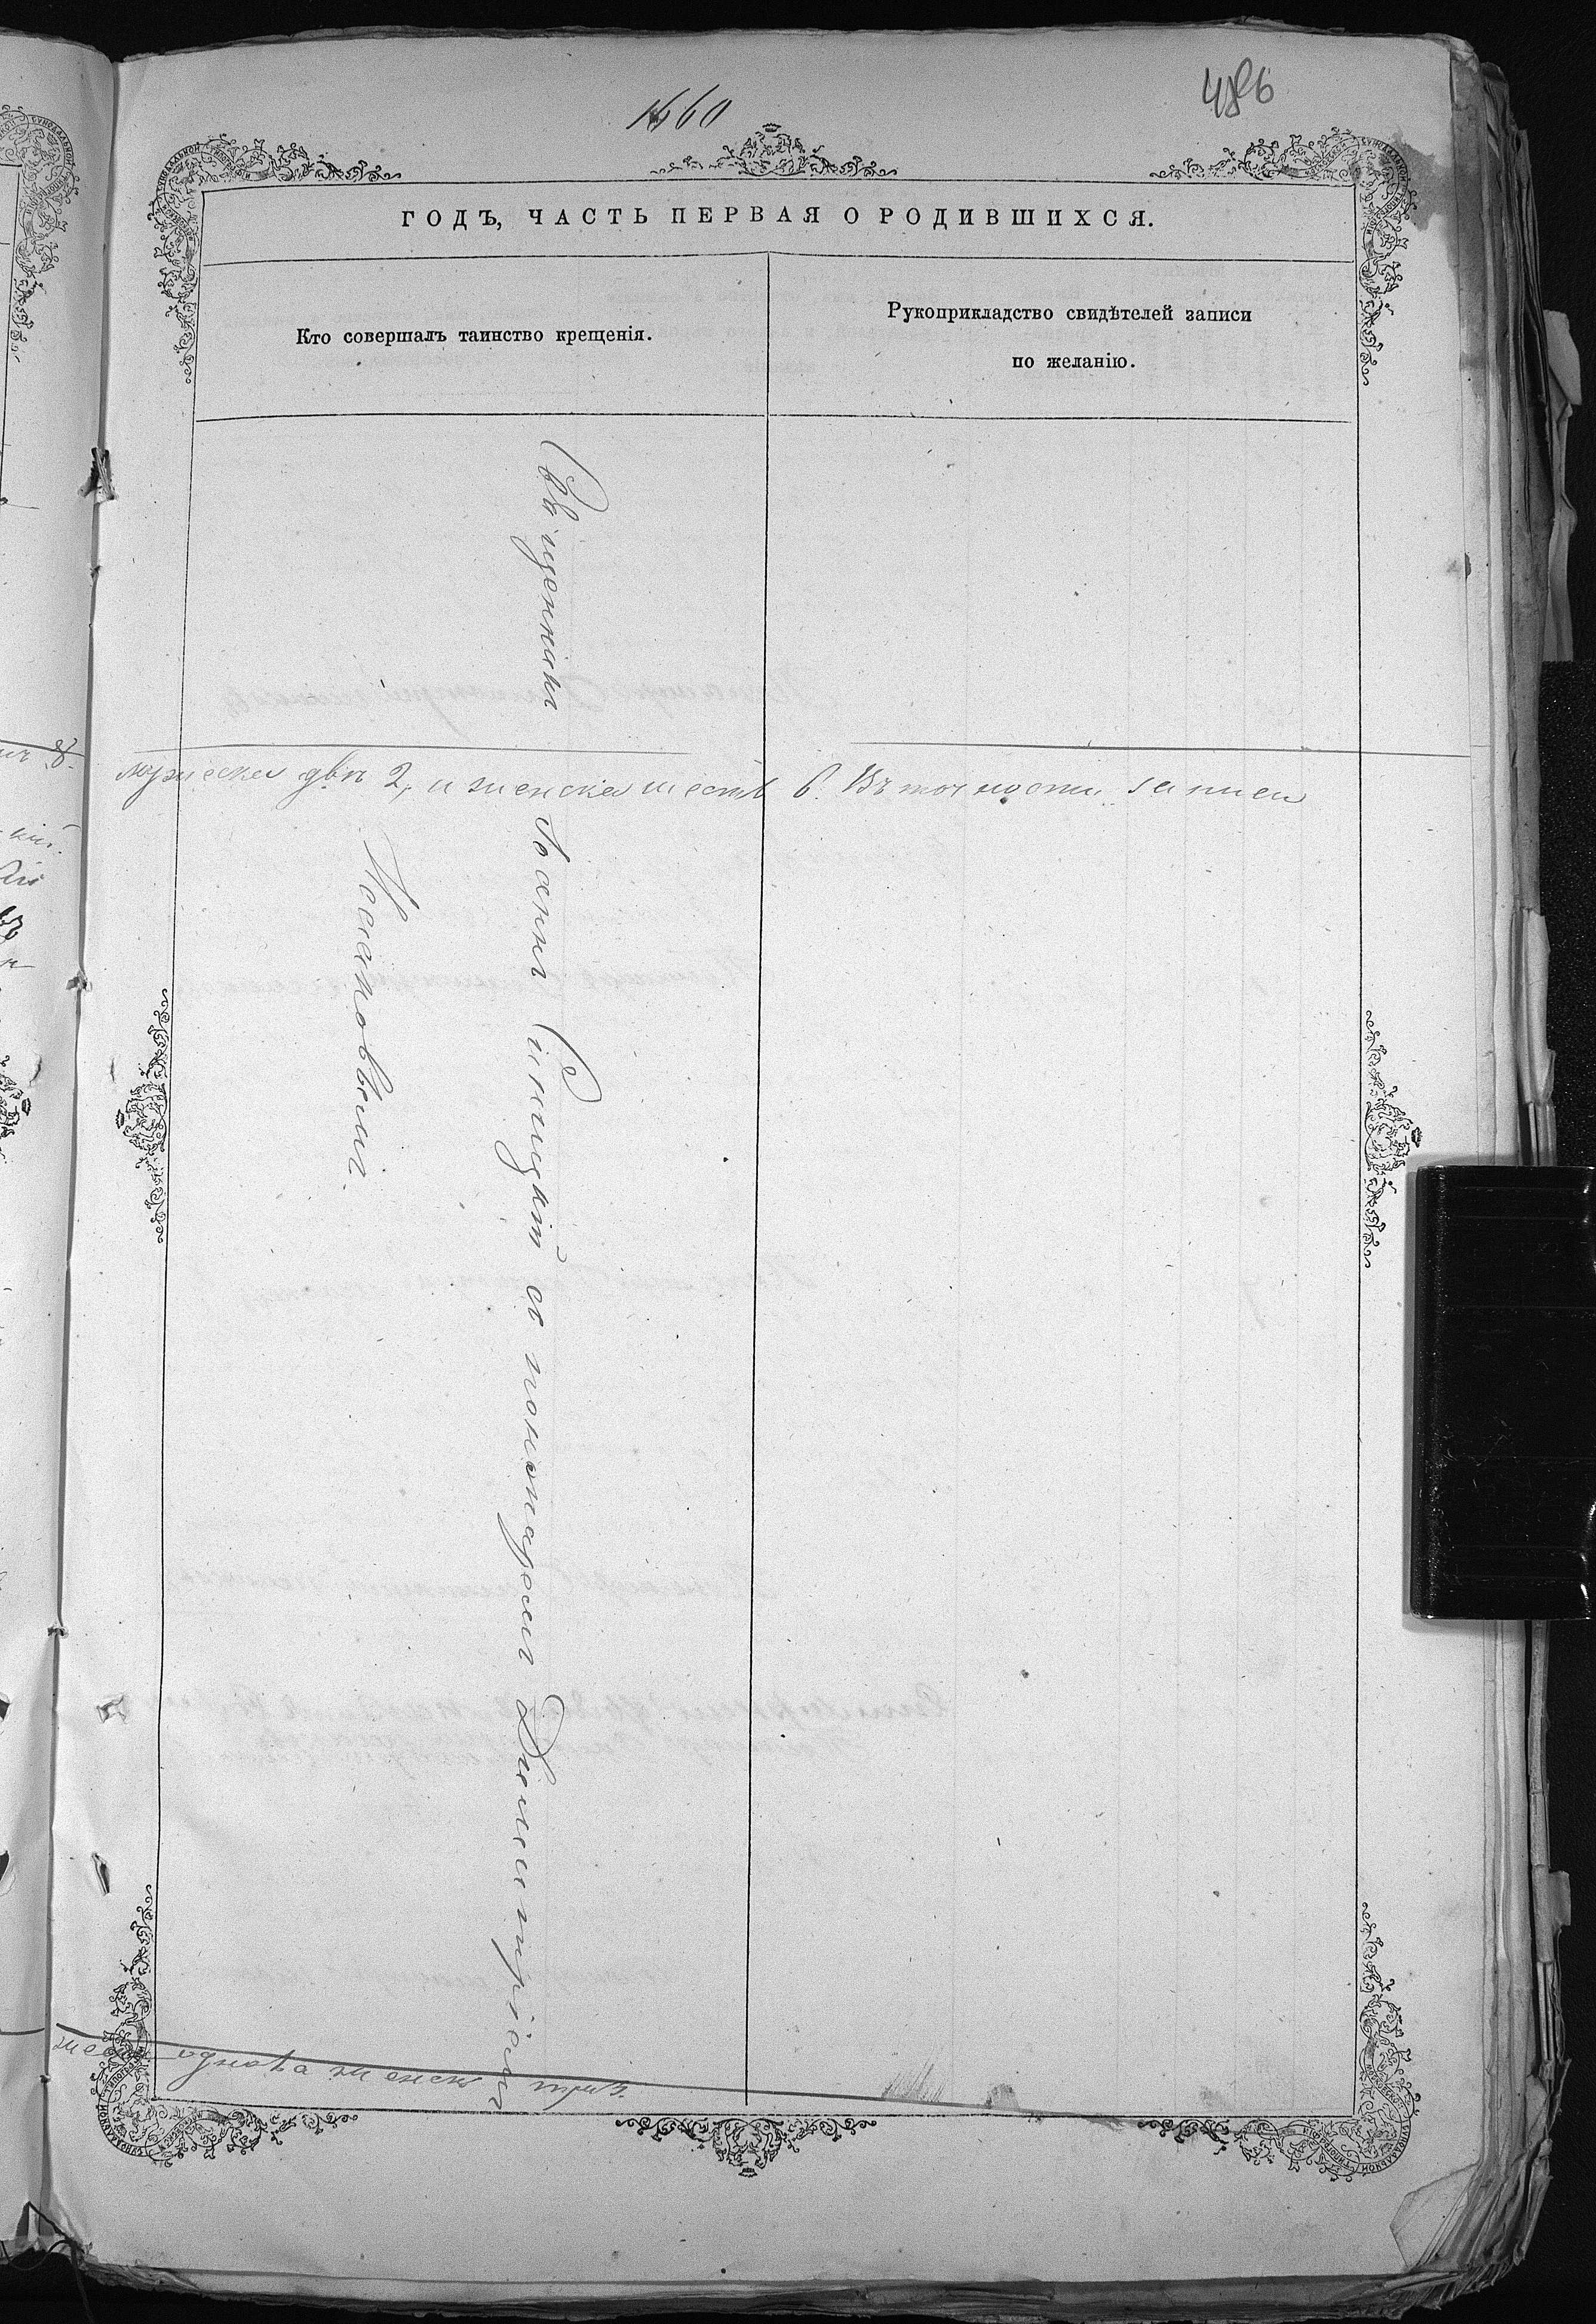 486
ГОДЪ, ЧАСТЬ ПЕРВАЯ О РОДИВШИХСЯ.
Кто совершалъ таинство крещенія.
Рукоприкладство свидѣтелей записи
по желанію.
Священникъ Іоаннъ Синицкій съ пономаремъ Димитріемъ
мужеска два 2, и женска шесть 6. Въ точности записи
однаго женска три